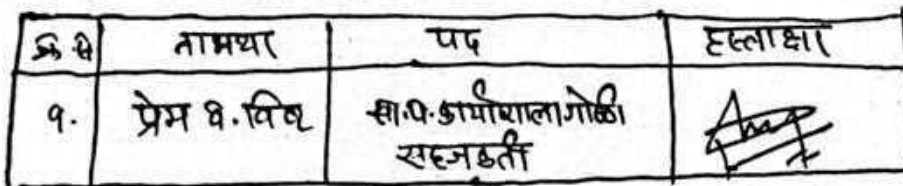 क्र.सं नामथर पद हस्ताक्षर
१. प्रेम ब. विष्ट सा.प. कार्यशाला गोष्ठी
सहजकर्ता